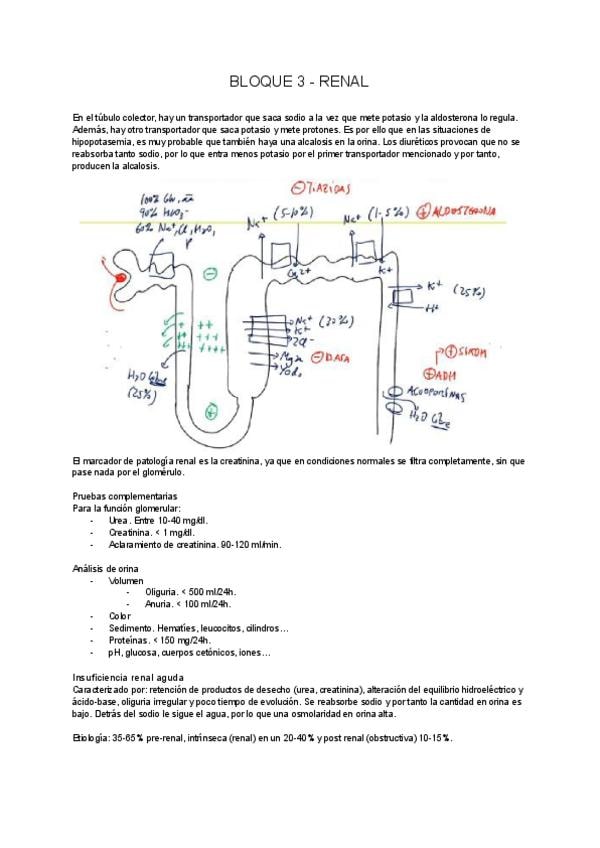 BLOQUE 3 - RENAL
En el túbulo colector, hay un transportador que saca sodio a la vez que mete potasio y la aldosterona lo regula.
Además, hay otro transportador que saca potasio y mete protones. Es por ello que en las situaciones de
hipopotasemia, es muy probable que también haya una alcalosis en la orina. Los diuréticos provocan que no se
reabsorba tanto sodio, por lo que entra menos potasio por el primer transportador mencionado y por tanto,
producen la alcalosis.
⊖ TIAZIDAS
100% Glu, aa
90% HCO3-
60% Na+, Cl, H2O,
P
Na+ (5-10%)
Na+ (1-5%) ⊕ ALDOSTERONA
⊖
Ca2+
K+
K+ (25%)
H+
+ ++
++ +++
+++ ++++
Na+ (20%)
K+
2Cl-
Mg2+
⊖ DAsa
⊕ SIADH
⊕ ADH
H2O libre
(25%)
⊕
ACUAPORINAS
H2O libre
El marcador de patología renal es la creatinina, ya que en condiciones normales se filtra completamente, sin que
pase nada por el glomérulo.
Pruebas complementarias
Para la función glomerular:
- Urea. Entre 10-40 mg/dl.
- Creatinina. < 1 mg/dl.
- Aclaramiento de creatinina. 90-120 ml/min.
Análisis de orina
- Volumen
- Oliguria. < 500 ml/24h.
- Anuria. < 100 ml/24h.
- Color
- Sedimento. Hematíes, leucocitos, cilindros…
- Proteínas. < 150 mg/24h.
- pH, glucosa, cuerpos cetónicos, iones…
Insuficiencia renal aguda
Caracterizado por: retención de productos de desecho (urea, creatinina), alteración del equilibrio hidroeléctrico y
ácido-base, oliguria irregular y poco tiempo de evolución. Se reabsorbe sodio y por tanto la cantidad en orina es
bajo. Detrás del sodio le sigue el agua, por lo que una osmolaridad en orina alta.
Etiología: 35-65% pre-renal, intrínseca (renal) en un 20-40% y post renal (obstructiva) 10-15%.